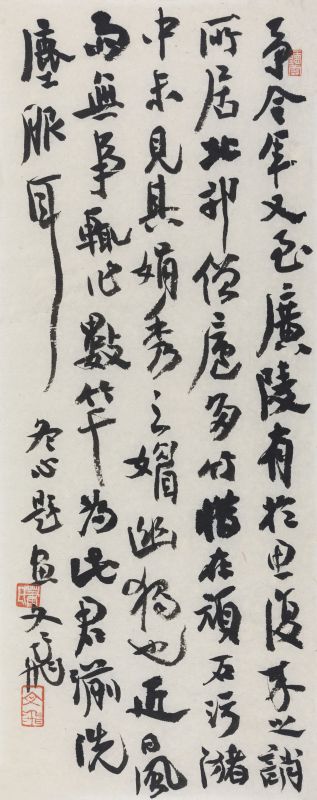 予今年又至廣陵有於思復來之誚
所居北郭僧廬多竹惜在頑石污瀦
中未見其娟秀之媚幽獨也近日風
雨無事輒作數竿為此君湔洗
塵服耳
冬心題畫 文飛
文飛